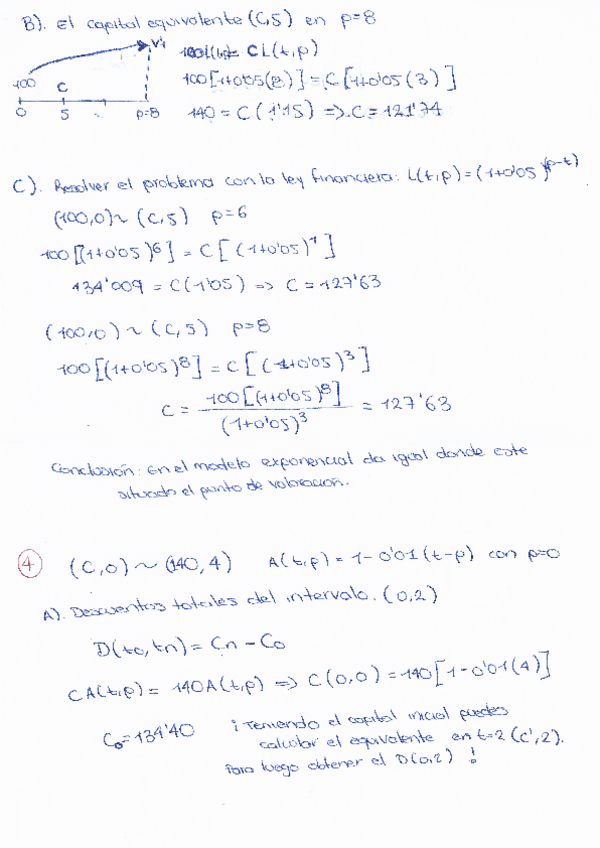 B). El capital equivalente (C,5) en p=8
V'1
100L(t,p)= CL(t,p)
100[1+0'05(8)] = C[1+0'05(3)]
100 C
0 5 p=8
140 = C(1'15) => C = 121'74
C). Resolver el problema con la ley financiera: L(t,p)=(1+0'05)^(p-t)
(100,0) ~ (C,5) p=6
100[(1+0'05)^6] = C[(1+0'05)^1]
134'009 = C(1'05) => C = 127'63
(100,0) ~ (C,5) p=8
100[(1+0'05)^8] = C[(1+0'05)^3]
C = 100[(1+0'05)^8] / (1+0'05)^3 = 127'63
Conclusión: En el modelo exponencial da igual donde este
situado el punto de valoración.
4 (C,0) ~ (140,4) A(t,p) = 1-0'01(t-p) con p=0
A). Descuentos totales del intervalo. (0,2)
D(to,tn) = Cn - Co
CA(t,p) = 140A(t,p) => C(0,0) = 140[1-0'01(4)]
Co=134'40 ¡Teniendo el capital inicial puedes
calcular el equivalente en t=2 (C',2).
Para luego obtener el D(0,2) !